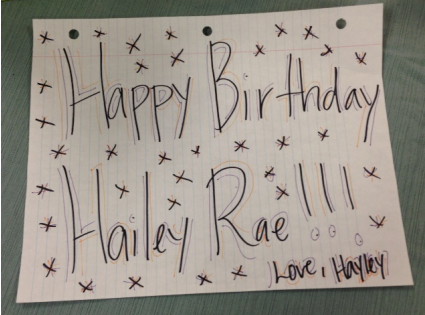 Happy Birthday
Hailey Rae!!!
Love, Hayley